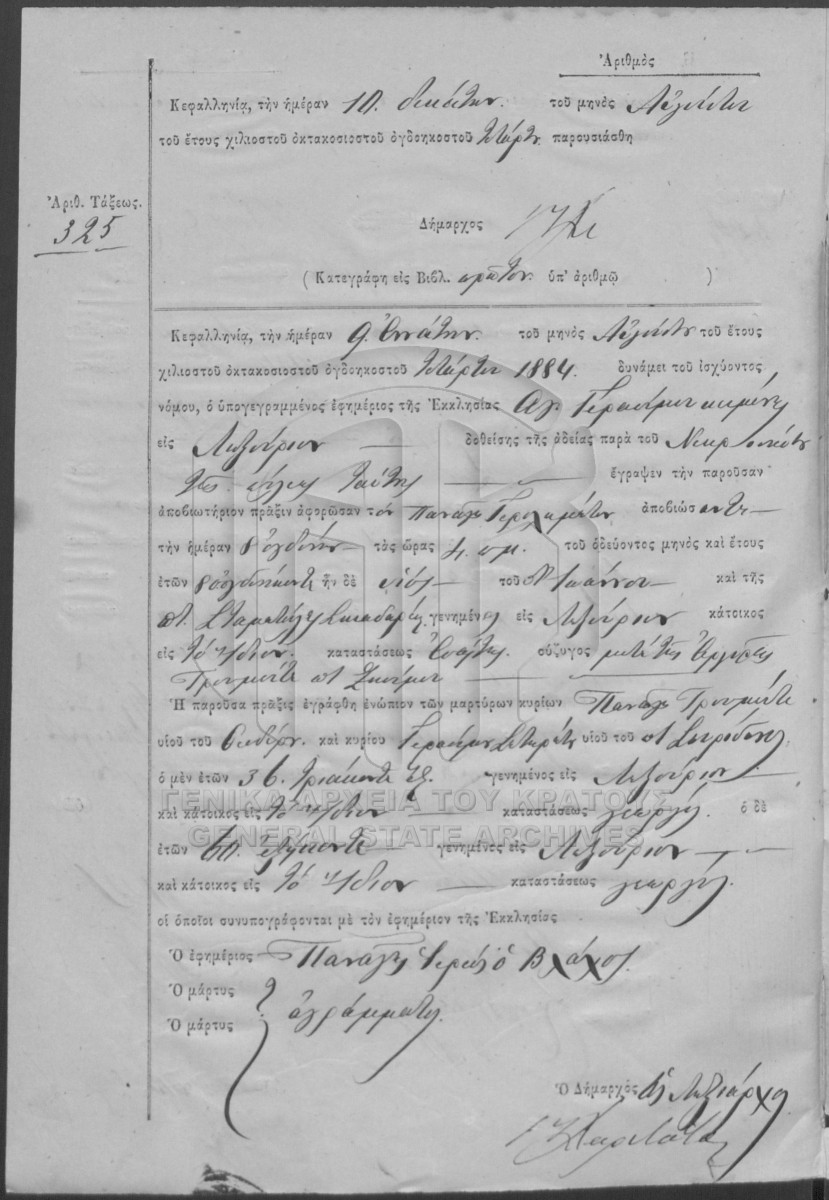 Ἀριθμὸς
Κεφαλληνίᾳ, τὴν ἡμέραν 10. δεκάτην. τοῦ μηνὸς Αὐγούστου
τοῦ ἔτους χιλιοστοῦ ὀκτακοσιοστοῦ ὀγδοηκοστοῦ τετάρτου παρουσιάσθη
Ἀριθ. Τάξεως.
325
Δήμαρχος
( Κατεγράφη εἰς Βιβλ. πρῶτον. ὑπ' ἀριθμῷ )
Κεφαλληνίᾳ, τὴν ἡμέραν 9. ἐννάτην. τοῦ μηνὸς Αὐγούστου τοῦ ἔτους
χιλιοστοῦ ὀκτακοσιοστοῦ ὀγδοηκοστοῦ τετάρτου 1884. δυνάμει τοῦ ἰσχύοντος
νόμου, ὁ ὑπογεγραμμένος ἐφημέριος τῆς Ἐκκλησίας Αγ. Γερασίμου κειμένης
εἰς Ληξούριον δοθείσης τῆς ἀδείας παρὰ τοῦ
τῆς πόλεως ταύτης ἔγραψεν τὴν παροῦσαν
ἀποβιωτήριον πρᾶξιν ἀφορῶσαν τὸν Παναγῆ ἀποβιώσαντα
τὴν ἡμέραν 8 ὀγδόην τὰς ὥρας 4. π.μ. τοῦ ὁδεύοντος μηνὸς καὶ ἔτους
ἐτῶν ἦν δὲ υἱὸς τοῦ Ἰωάννου καὶ τῆς
γενημένος εἰς Ληξούριον κάτοικος
εἰς τὸ ἴδιον. καταστάσεως σύζυγος μετὰ τῆς
Ἡ παροῦσα πρᾶξις ἐγράφθη ἐνώπιον τῶν μαρτύρων κυρίων Παναγῆ
υἱοῦ τοῦ Θεοδώρου καὶ κυρίου Γερασίμου υἱοῦ τοῦ π Σπυρίδωνος
ὁ μὲν ἐτῶν 36. τριάκοντα ἕξ. γενημένος εἰς Ληξούριον
καὶ κάτοικος εἰς τὸ ἴδιον καταστάσεως γεωργός. ὁ δὲ
ἐτῶν 60. ἑξήκοντα γενημένος εἰς Ληξούριον
καὶ κάτοικος εἰς τὸ ἴδιον καταστάσεως γεωργός.
οἱ ὁποῖοι συνυπογράφονται μὲ τὸν ἐφημέριον τῆς Ἐκκλησίας
Ὁ ἐφημέριος Παναγῆς Ἱερεὺς ὁ Βλάχος
Ὁ μάρτυς
Ὁ μάρτυς ἀγράμματοι.
Ὁ Δήμαρχος ὡς Ληξίαρχος
ΓΕΝΙΚΑ ΑΡΧΕΙΑ ΤΟΥ ΚΡΑΤΟΥΣ
GENERAL STATE ARCHIVES